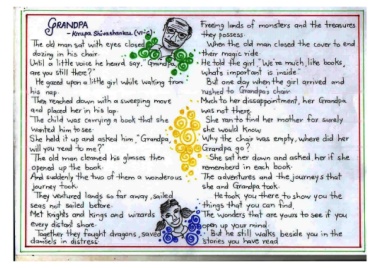 GRANDPA
- Krupa Shivashankar (VI-
The old man sat with eyes closed
dozing in his chair.
Until a little voice he heard say, "Grandpa
are you still there?"
He gazed upon a little girl while waiting from
his nap.
They reached down with a sweeping move
and placed her in his lap.
The child was carrying a book that she
wanted him to see.
She held it up and asked him, "Grandpa,
will you read to me?"
The old man cleaned his glasses then
opened up the book.
And suddenly the two of them a wonderous
journey took.
They ventured lands so far away, sailed
seas not sailed before.
Met knights and kings and wizards
every distant shore.
Together they fought dragons, saved
damsels in distress.
Freeing lands of monsters and the treasures
they possess.
When the old man closed the cover to end
their magic ride.
He told the girl, "We're much, like books,
what's important is inside."
But one day when the girl arrived and
rushed to Grandpa's chair
Much to her disappointment, her Grandpa
was not there.
She ran to find her mother for surely
she would know.
Why the chair was empty, where did her
Grandpa go?
She sat her down and asked her if she
remembered in each book.
The adventures and the journeys that
she and Grandpa took.
He took you there to show you the
things that you can find.
The wonders that are yours to see if you
open up your mind.
But he still walks beside you in the
stories you have read.